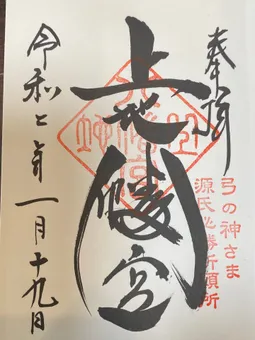 奉拝
弓の神さま
源氏必勝祈願所
上地八幡宮
令和七年一月十九日